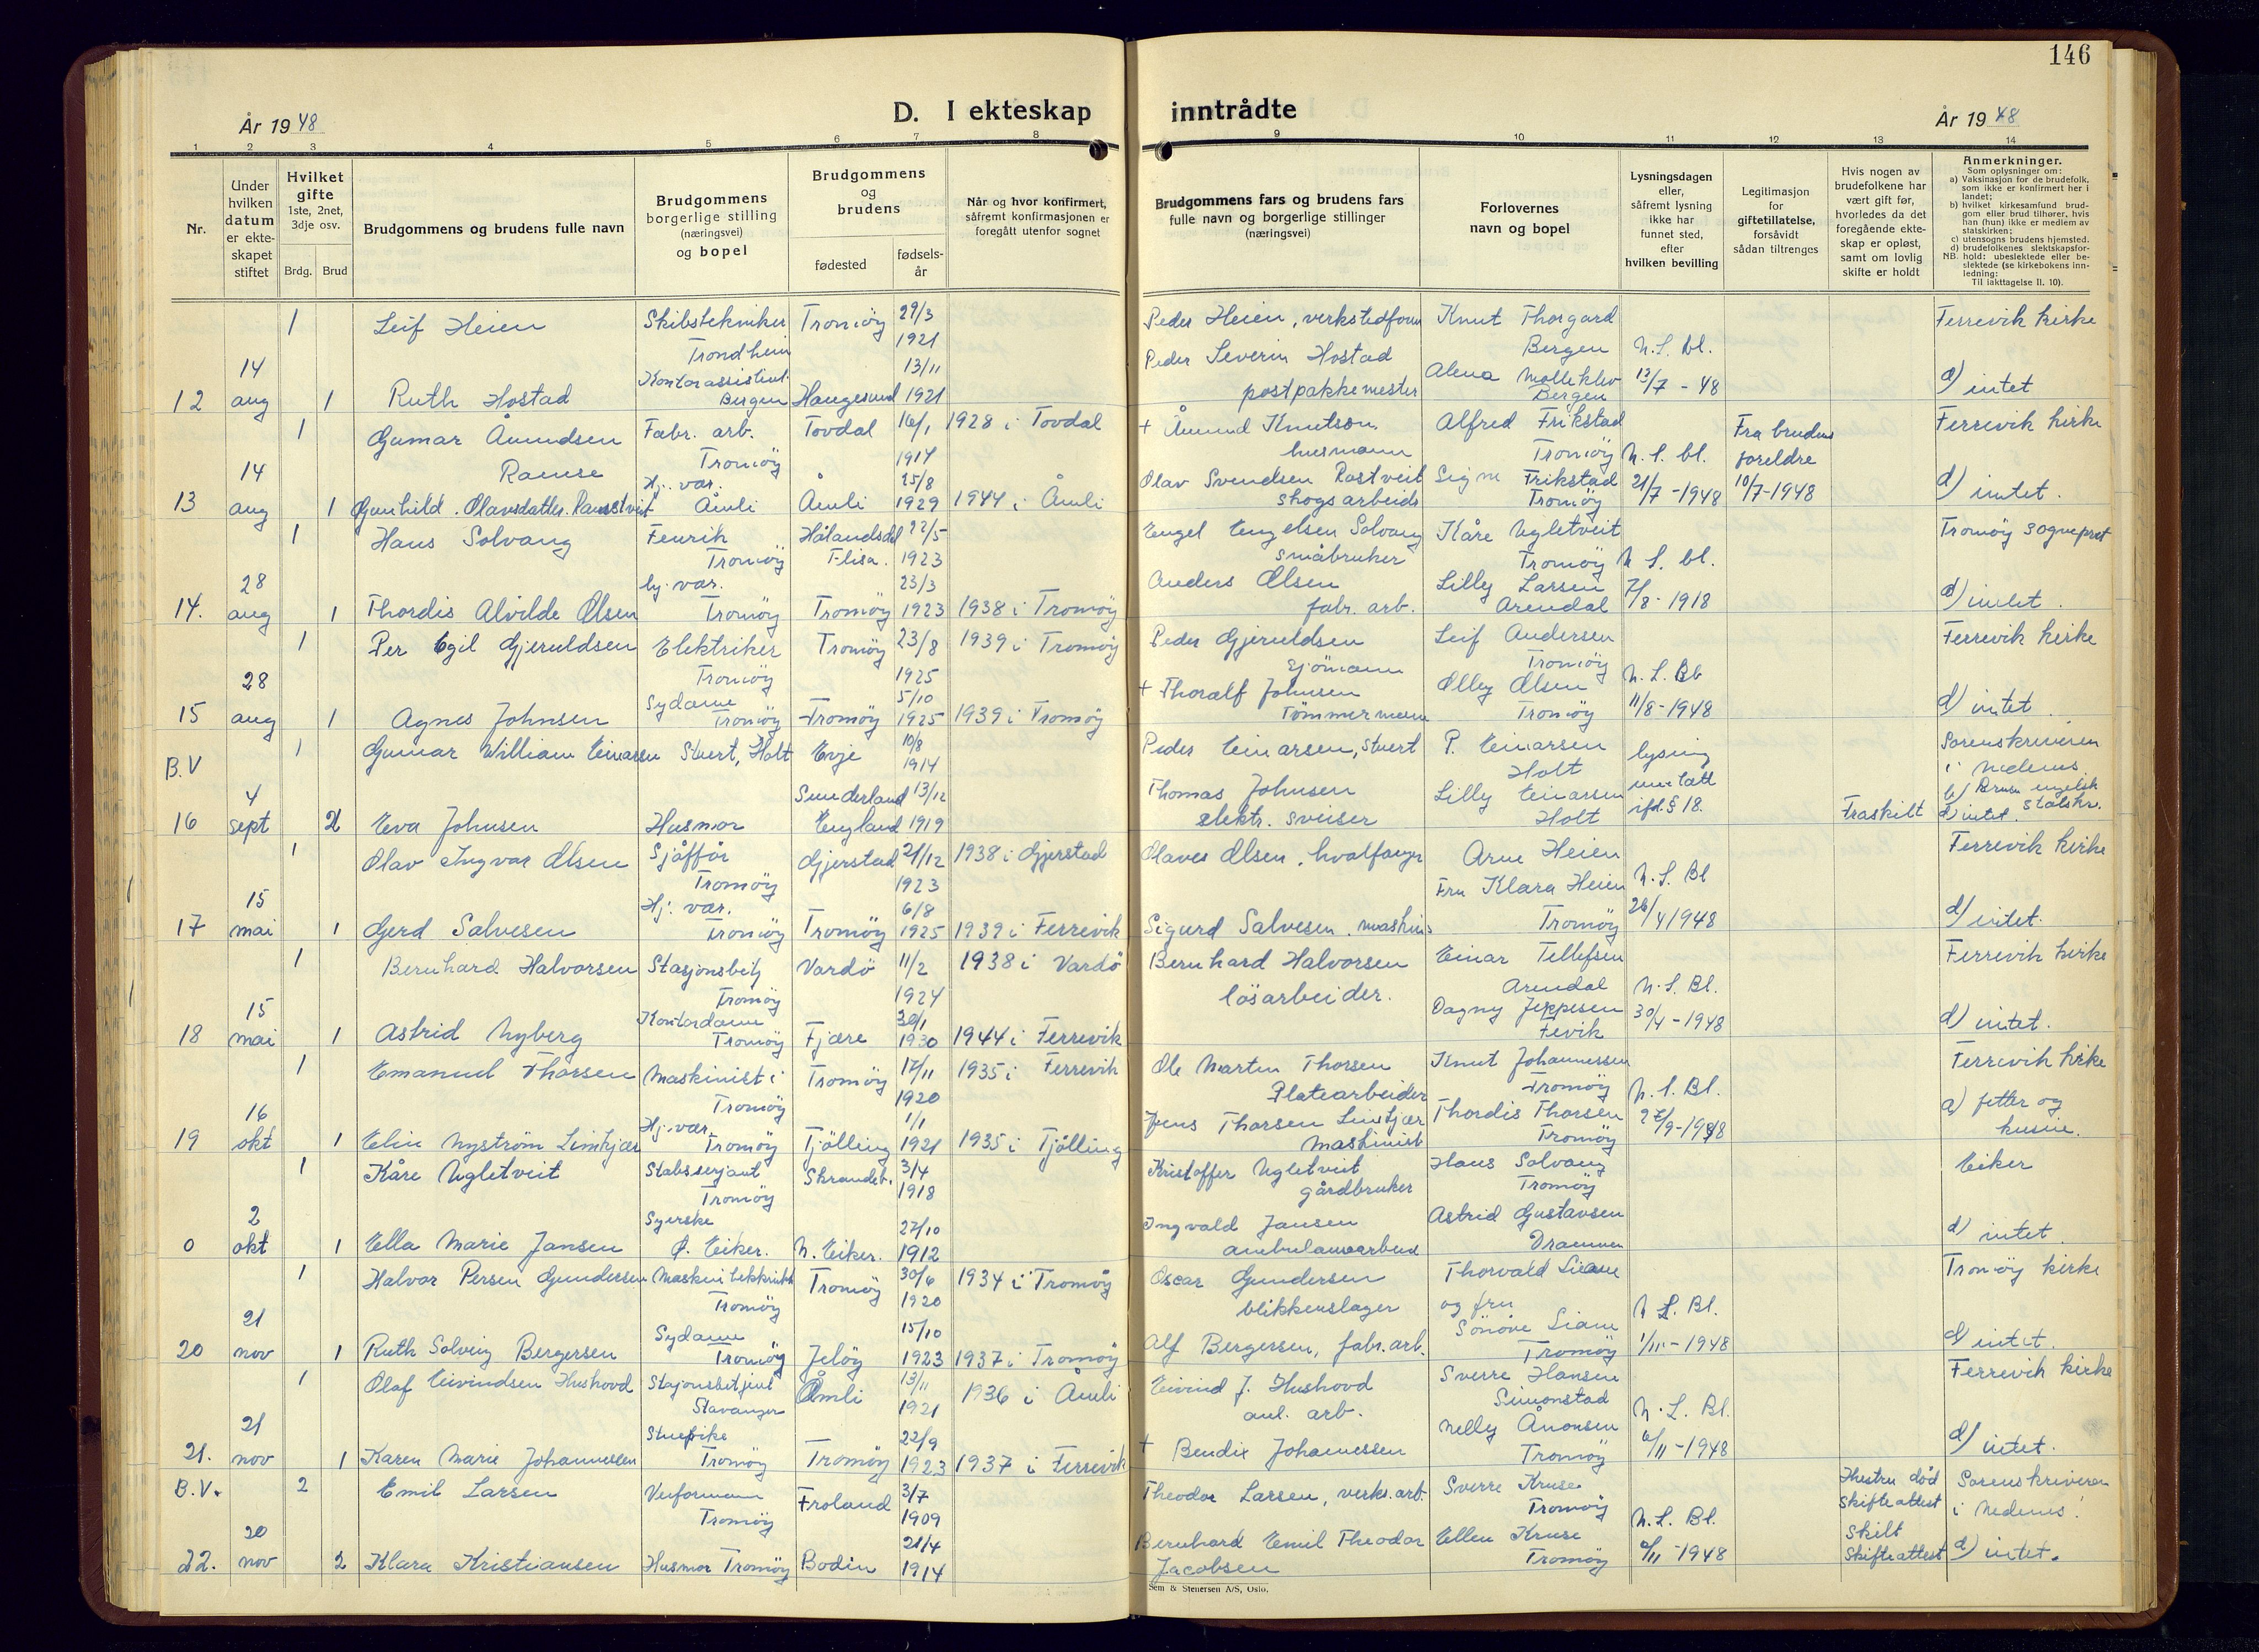 146
D. I ekteskap inntrådte
År 1948
År 1948
1 2 3 4 5 6 7 8 9 10 11 12 13 14
Nr.
Under
hvilken
datum
er ekte-
skapet
stiftet
Hvilket
gifte
1ste, 2net,
3dje osv.
Brdg. Brud
Brudgommens og brudens fulle navn
Brudgommens
borgerlige stilling
(næringsvei)
og bopel
Brudgommens
og
brudens
fødested
fødsels-
år
Når og hvor konfirmert,
såfremt konfirmasjonen er
foregått utenfor sognet
Brudgommens fars og brudens fars
fulle navn og borgerlige stillinger
(næringsvei)
Forlovernes
navn og bopel
Lysningsdagen
eller,
såfremt lysning
ikke har
funnet sted,
efter
hvilken bevilling
Legitimasjon
for
giftetillatelse,
forsåvidt
sådan tiltrenges
Hvis nogen av
brudefolkene har
vært gift før,
hvorledes da det
foregående ekte-
skap er opløst,
samt om lovlig
skifte er holdt
Anmerkninger.
Som oplysninger om:
a) Vaksinasjon for de brudefolk,
som ikke er konfirmert her i
landet;
b) hvilket kirkesamfund brud-
gom eller brud tilhører, hvis
han (hun) ikke er medlem av
statskirken;
c) utensogns brudens hjemsted.
d) brudefolkenes slektskapsfor-
NB. hold: ubeslektede eller be-
slektede (se kirkebokens inn-
ledning:
Til iakttagelse II. 10).
1 Leif Heien Skibstekniker Tromöy 29/3 Peder Heien, verkstedform Knut Thorgard Ferrevik kirke
Trondheim 1921 Bergen N.L. Bl.
14 Kontorassistent 13/11 Peder Severin Hostad Molleklev 13/7 - 48
12 aug 1 Ruth Hostad Bergen Haugesund 1921 postpakkemester Bergen d) intet
1 Gunnar Åmundsen Fabr. arb. Tovdal 16/1 1928 i Tovdal + Åmund Knutson Alfred Frikstad Fra brudens Ferrevik kirke
Ramse Tromöy 1914 husmann Tromöy N.L. bl. foreldre
14 Hj. var. 25/8 Olav Svendsen Signe Frikstad 21/7-1948 10/7-1948
13 aug 1 Gunhild Olavsdatter Åmli Åmli 1929 1944 i Åmli skogsarbeider Tromöy d) intet.
1 Hans Solvang Fenrik 22/5 Engel Engelsen Solvang Kåre Ugletveit Tromöy sogneprest
Tromöy Flisa. 1923 småbruker Tromöy N.L. bl.
28 hj. var. 23/3 Anders Olsen Lilly Larsen
14. aug 1 Thordis Alvilde Olsen Tromöy Tromöy 1923 1938 i Tromöy fabr. arb. Arendal d) intet.
1 Per Egil Gjeruldsen Elektriker Tromöy 23/8 1939 i Tromöy Peder Gjeruldsen Leif Andersen Ferrevik kirke
Tromöy 1925 sjömann Tromöy N.L. Bl
28 Sydame 5/10 + Thoralf Johnsen Olsen 11/8-1948
15 aug 1 Agnes Johnsen Tromöy Tromöy 1925 1939 i Tromöy Tömmermann Tromöy d) intet.
B.V 1 Gunnar William Einarsen Stuert, Holt Evje 10/8 1914 Peder Einarsen, stuert P. Einarsen Holt lysing Sorenskriveren i Nedenes
4 Sunderland 13/12 Thomas Johnsen Lilly Einarsen unnlatt
16 sept 2 Eva Johnsen Husmor England 1919 elektr. sveiser Holt ifl. § 18. Fraskilt d) intet.
1 Olav Ingvar Olsen Sjåfför Gjerstad 21/12 1938 i Gjerstad Olaves Olsen, hvalfanger Arne Heien Ferrevik kirke
Tromöy 1923 Fru Klara Heien N.L. Bl
15 Hj. var. 6/8
17 mai 1 Gerd Salvesen Tromöy Tromöy 1925 1939 i Ferrevik Sigurd Salvesen. maskinis Tromöy 26/4 1948 d) intet.
1 Bernhard Halvorsen Stasjonsbetj Vardö 11/2 1938 i Vardö Bernhard Halvorsen Einar Tellefsen Ferrevik kirke
Tromöy 1924 lösarbeider. Arendal N.L. Bl.
15 Kontordame 30/1 Dagny Jeppesen 30/4-1948
18 mai 1 Astrid Nyberg Tromöy Fjære 1930 1944 i Ferrevik Fevik d) intet.
1 Emanuel Thorsen Maskinist i Tromöy 17/11 1935 i Ferrevik Ole Martin Thorsen Knut Johannessen Ferrevik kirke
Tromöy 1920 Platearbeider Tromöy N.L. Bl.
16 Hj. var. 1/1 Jens Thorsen Limkjær Thordis Thorsen 27/9-1948 fetter og
19 okt 1 Elin Nyström Limkjær Tromöy Tjölling 1921 1935 i Tjölling maskinist Tromöy kusine.
1 Kåre Ugletveit Stabssersjant 3/4 Kristoffer Ugletveit Hans Solvang Eiker
Tromöy 1918 gårdbruker Tromöy
2 Syerske 27/10 Ingvald Jansen Astrid Gustavsen
0 okt 1 Ella Marie Jansen Ö. Eiker. N. Eiker. 1912 Drammen d) intet.
1 Halvor Persen Gundersen Tromöy 30/6 1934 i Tromöy Oscar Gundersen Thorvald Liane Tromöy kirke
Tromöy 1920 blikkenslager og fru N.L. Bl.
21 Sydame 15/10 Sönöve Liane 1/11-1948
20 nov 1 Ruth Solveig Bergersen Tromöy Jelöy 1923 1937 i Tromöy Alf Bergersen, fabr. arb. Tromöy d) intet.
1 Olaf Eivindsen Hushovd Stasjonsbetjent Åmli 13/11 1936 i Åmli Eivind J. Hushovd Sverre Hansen Ferrevik kirke
Stavanger 1921 anl. arb. Simonstad N.L. Bl.
21 Stuepike 22/9 Nelly Ånonsen
21. nov 1 Karen Marie Johannessen Tromöy Tromöy 1923 1937 i Ferrevik + Bendix Johannessen Tromöy 6/11-1948 d) intet.
B.V. 2 Emil Larsen Verformann Froland 3/7 Theodor Larsen, verks. arb. Sverre Kruse Hustru död Sorenskriveren
Tromöy 1909 Tromöy N.L. Bl. Skifteattest i Nedenes!
20 21/4 Bernhard Emil Theodor Ellen Kruse Skilt
22. nov 2 Klara Kristiansen Husmor Tromöy Bodin 1914 Jacobsen Tromöy Skifteattest d) intet.
Sem & Stenersen A/S, Oslo.